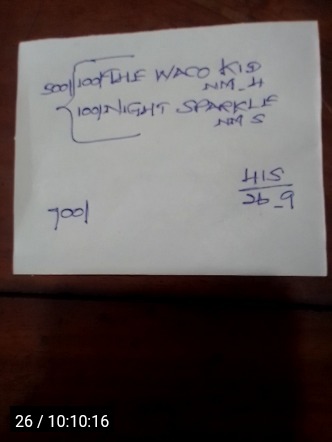 500/ 100/ THE WACO KID
NM_H
100/ NIGHT SPARKLE
NM S
415
26_9
700/
26 / 10:10:16